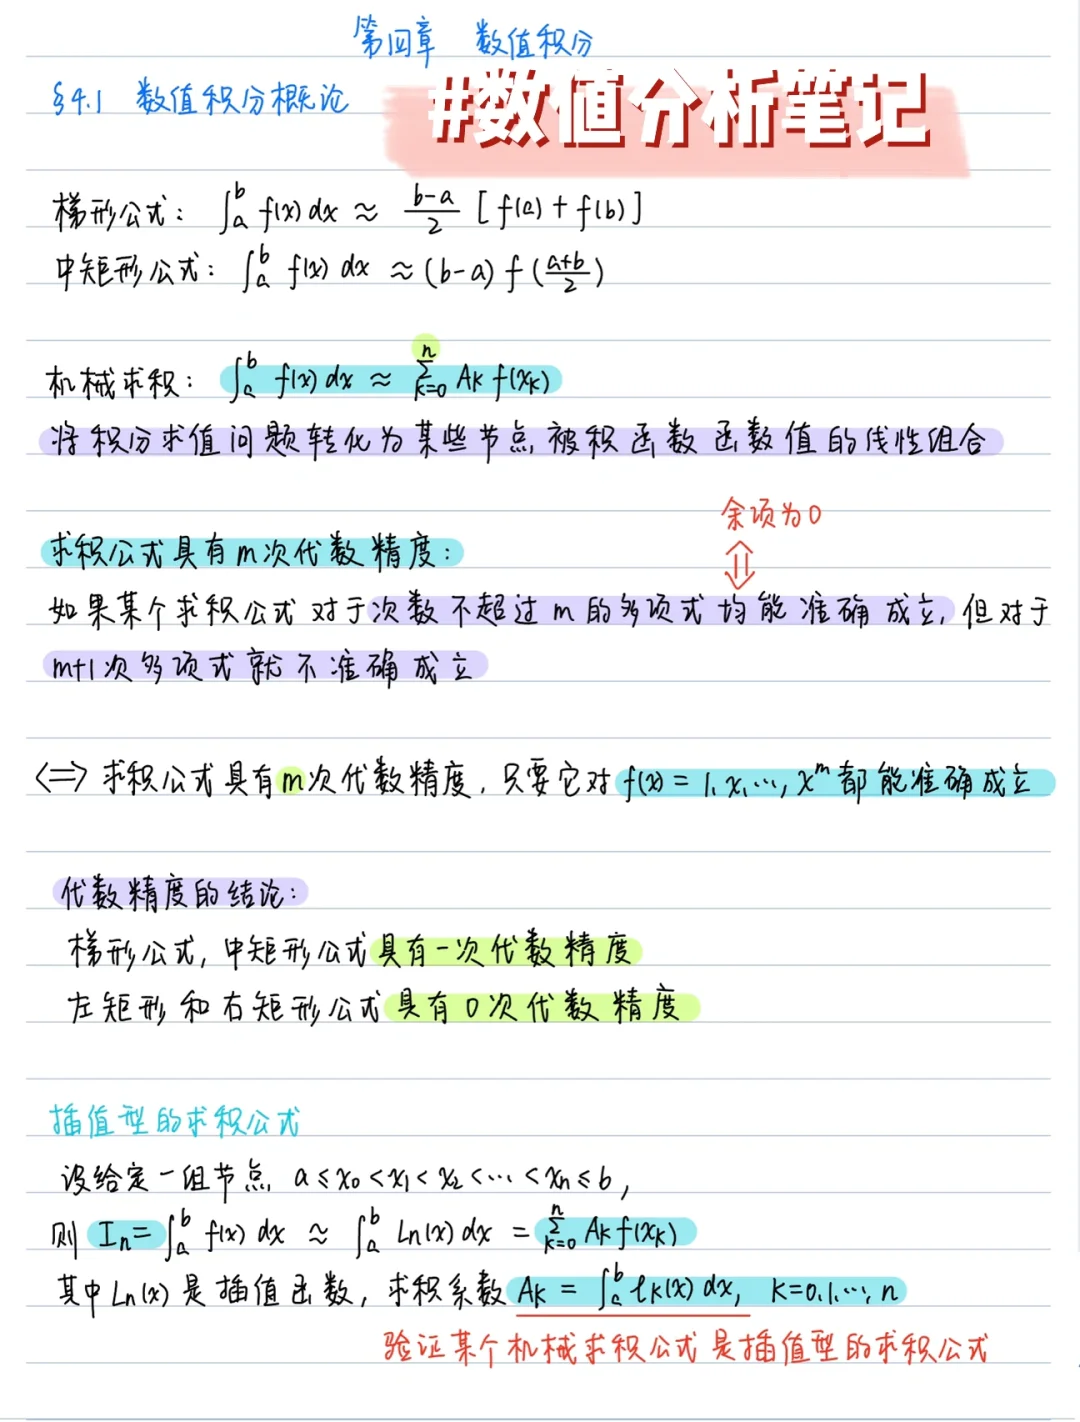 第四章 数值积分
§4.1 数值积分概论
#数值分析笔记
梯形公式: ∫_a^b f(x)dx ≈ (b-a)/2 [f(a)+f(b)]
中矩形公式: ∫_a^b f(x)dx ≈ (b-a) f((a+b)/2)
机械求积: ∫_a^b f(x)dx ≈ Σ_{k=0}^n A_k f(x_k)
将积分求值问题转化为某些节点被积函数函数值的线性组合
余项为0
⇕
求积公式具有m次代数精度:
如果某个求积公式对于次数不超过m的多项式均能准确成立,但对于
m+1次多项式就不准确成立
<=> 求积公式具有m次代数精度,只要它对f(x)=1,x,…,x^m都能准确成立
代数精度的结论:
梯形公式,中矩形公式具有一次代数精度
左矩形和右矩形公式具有0次代数精度
插值型的求积公式
设给定一组节点 a≤x_0<x_1<x_2<…<x_n≤b,
则 I_n = ∫_a^b f(x)dx ≈ ∫_a^b L_n(x)dx = Σ_{k=0}^n A_k f(x_k)
其中L_n(x)是插值函数,求积系数 A_k = ∫_a^b l_k(x)dx, k=0,1,…,n
验证某个机械求积公式是插值型的求积公式